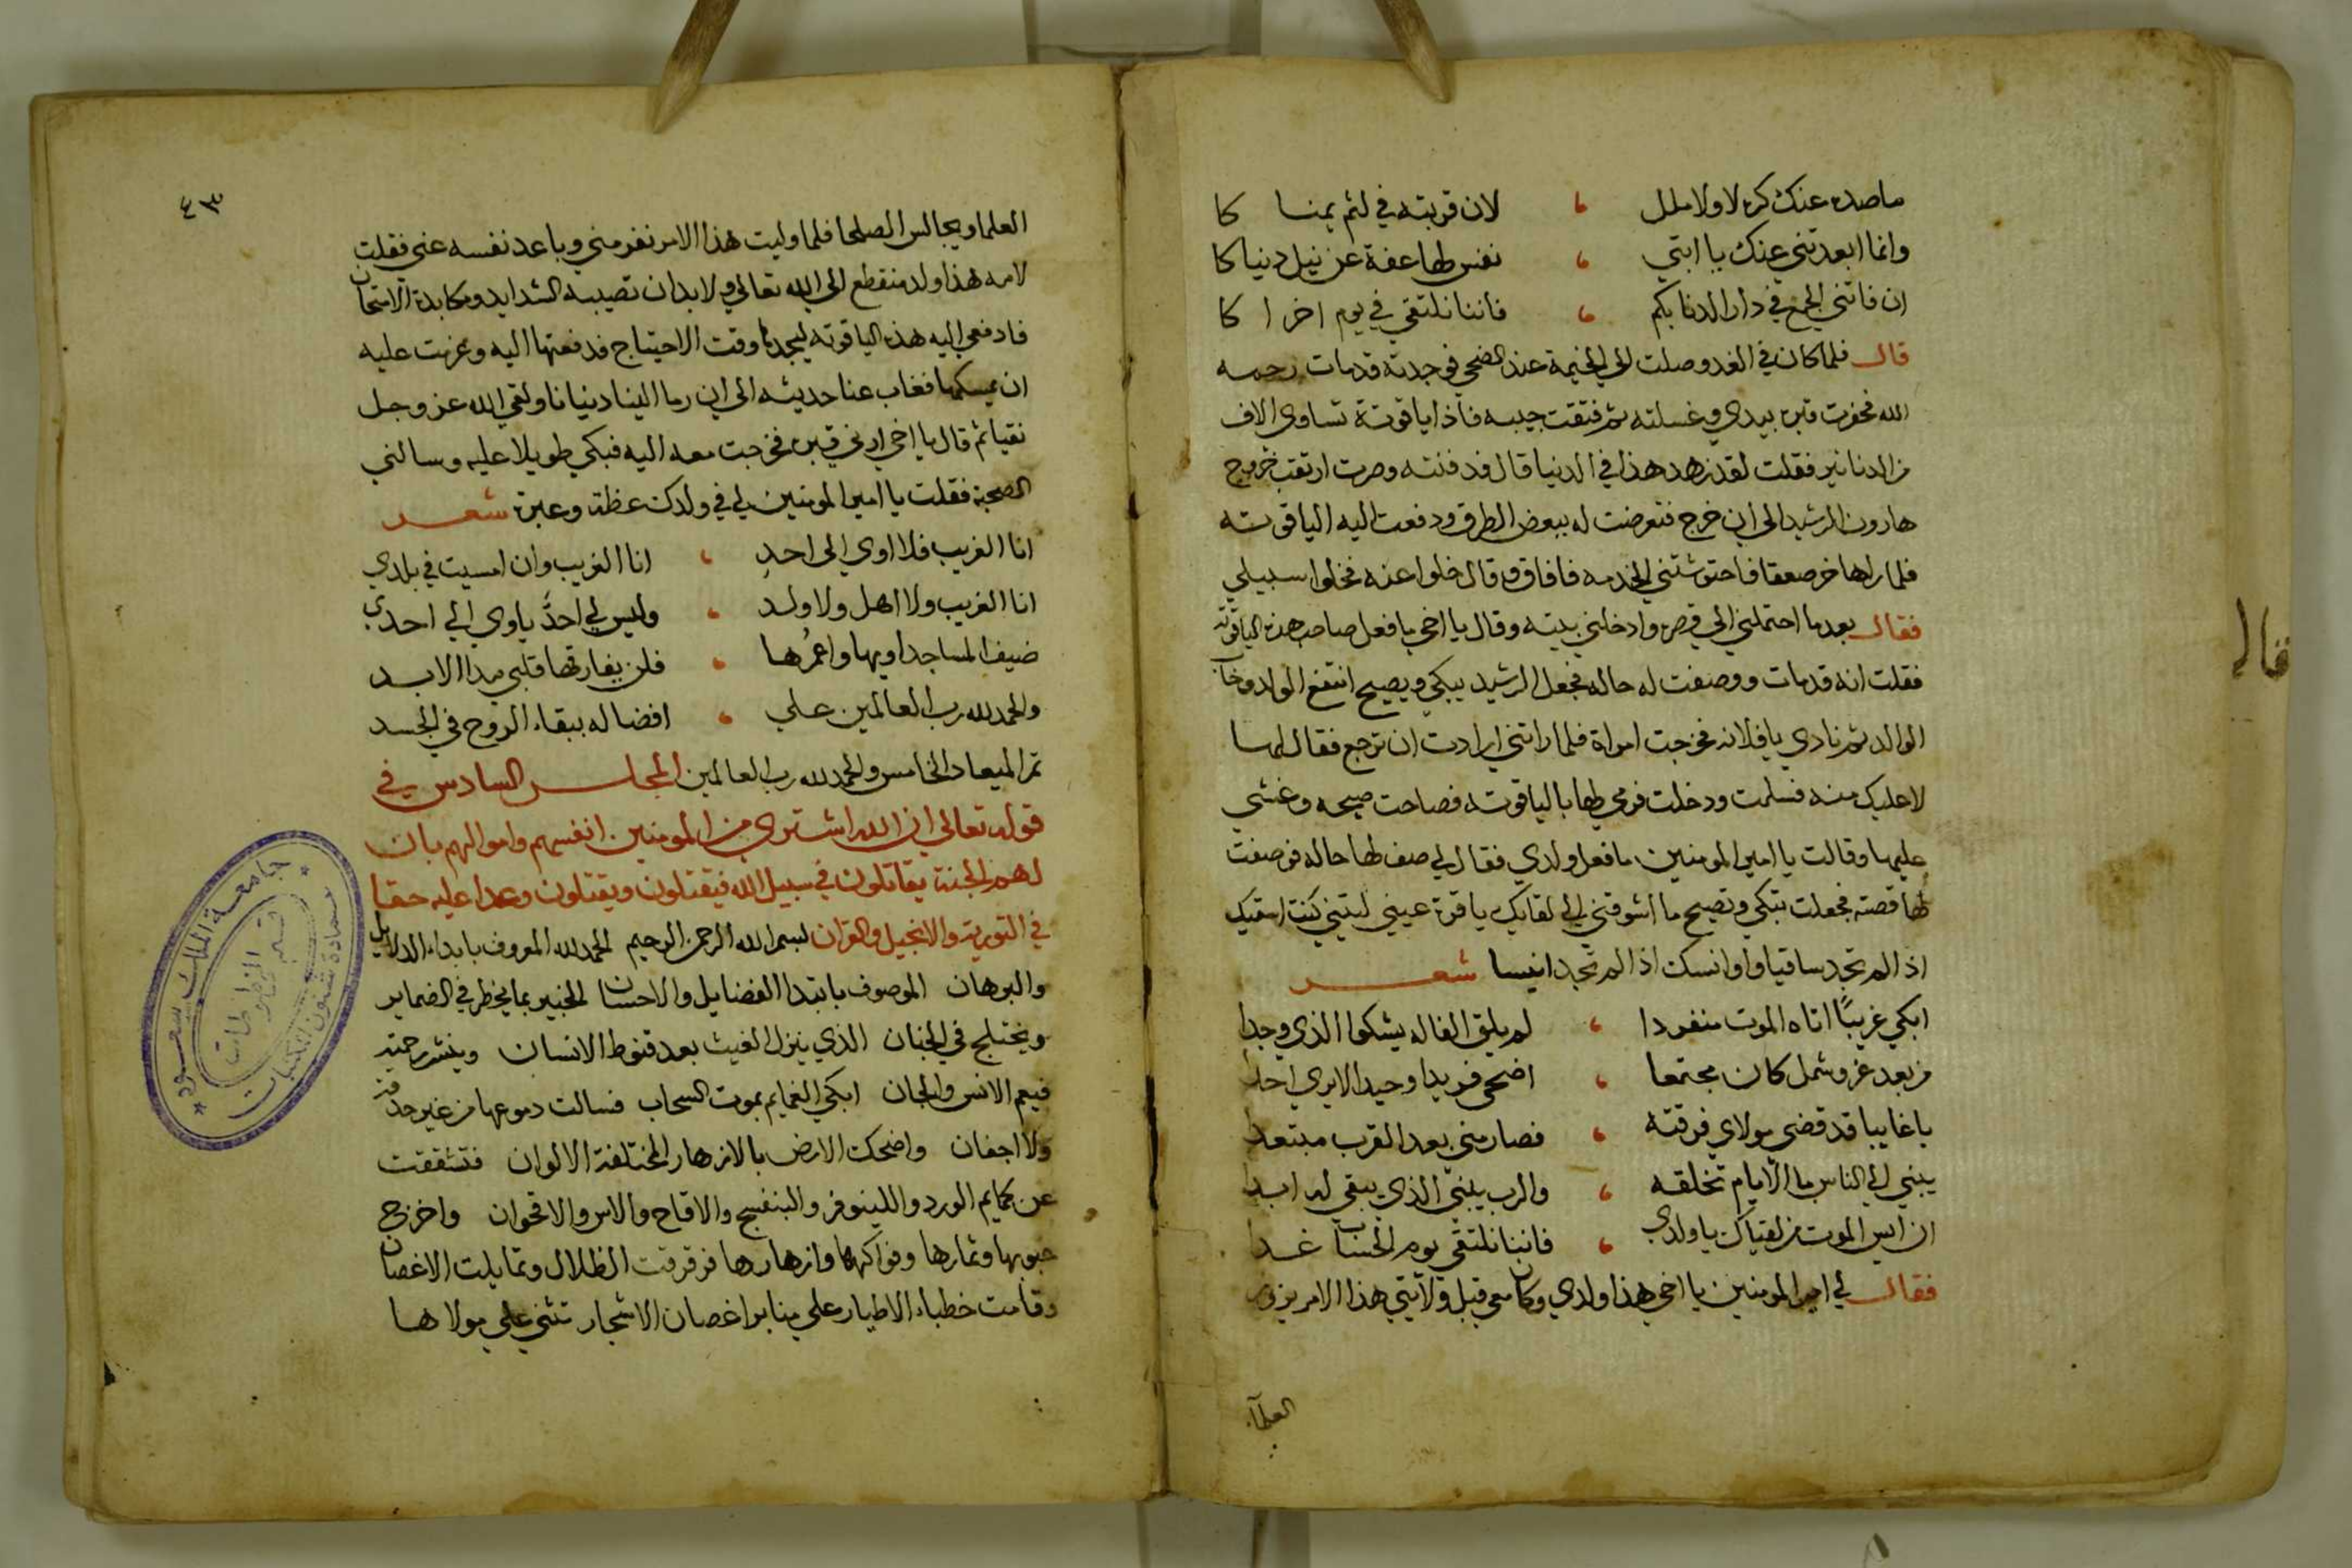 ما صده عنك كره لا ولا ملل ، لان قربته في لثم يمنا كا
وانما ابعدتني عنك يا ابتي ، نفس لها عفة عن نيل دنيا كا
ان فاتني الجمع في دار الدنا بكم ، فاننا نلتقي في يوم اخرا كا
قال فلما كان في الغد وصلت الي الخيمة عند الضحي فوجدته قد مات رحمه
الله فحفرت قبره بيدي وغسلته ثم فتقت جيبه فاذا ياقوتة تساوي الاف
من الدنانير فقلت لقد زهد هذا في الدنيا قال فدفنته وصرت ارتقب خروج
هارون الرشيد الي ان خرج فتعرضت له ببعض الطرق ودفعت اليه الياقوته
فلما راها خر صعقا فاحتوشتني الخدمه فافاق وقال خلوا عنه فخلوا سبيلي
فقال بعد ما احتملني الي قصره وادخلني بيته وقال يا اخي ما فعل صاحب هذه الياقوته
فقلت انه قد مات ووصفت له حاله فجعل الرشيد يبكي ويصيح انتفع الولد وخاب
الوالد ثم نادي يا فلانه فخرجت امراة فلما راتني ارادت ان ترجع فقال لها
لا عليك منه فسلمت ودخلت فرمي لها بالياقوته فصاحت صيحه وغشي
عليها وقالت يا امير المومنين ما فعل ولدي فقال لي صف لها حاله فوصفت
لها قصته فجعلت تبكي وتصيح ما اشوقني الي لقايك يا قرة عيني ليتني كنت اسقيك
اذا لم تجد ساقيا واوانسك اذا لم تجد انيسا شعر
ابكي غريبًا اتاه الموت منفردا ، لم يلق الفا له يشكوا الذي وجدا
من بعد عز وشمل كان مجتمعا ، اضحي فريدا وحيدا لا يري احدا
يا غايبا قد قضي مولاي فرقته ، فصار مني بعد القرب مبتعدا
يبني الي الناس ما الايام تخلقه ، والرب يبني الذي يبقي له ابدا
ان ايس الموت من لقياك يا ولدي ، فاننا نلتقي يوم الحساب غدا
فقال لي امير المومنين يا اخي هذا ولدي وكان معي قبل ولايتي هذا الامر يزور
العلماء
فقال
٤٣
العلما ويجالس الصلحا فلما وليت هذا الامر نفر مني وباعد نفسه عني فقلت
لامه هذا ولد منقطع الي الله تعالي ولا بد ان تصيبه الشدايد ومكابدة الامتحان
فادفعي اليه هذه الياقوته ليجدها وقت الاحتياج فدفعتها اليه وعزمت عليه
ان يمسكها فغاب عنا حديثه الي ان رما الينا دنيانا ولقي الله عز وجل
نقيا ثم قال يا اخي ارني قبره فخرجت معه اليه فبكي طويلا عليه وسالني
الصحبة فقلت يا امير المومنين لي في ولدك عظة وعبرة شعر
انا الغريب فلا اوي الى احدٍ ، انا الغريب وان امسيت في بلدي
انا الغريب ولا اهل ولا ولد ، وليس لي احدٌ ياوي الي احدي
ضيف المساجد اويها واعمُرها ، فلن يفارقها قلبي مدا الابد
والحمد لله رب العالمين علي ، افضاله ببقاء الروح في الجسد
تم الميعاد الخامس والحمد لله رب العالمين المجلس السادس في
قوله تعالي ان الله اشتري من المومنين انفسهم واموالهم بان
لهم الجنة يقاتلون في سبيل الله فيقتلون ويقتلون وعدا عليه حقا
في التورية والانجيل والقران بسم الله الرحمن الرحيم الحمد لله المعروف بابداء الدلايل
والبرهان الموصوف بابتدا الفضايل والاحسان الخبير بما يخطر في الضماير
ويختلج في الجنان الذي ينزل الغيث بعد قنوط الانسان وينشر رحمته
فيعم الانس والجان ابكي الغمايم بموت السحاب فسالت دموعها من غير حدقة
ولا اجفان واضحك الارض بالازهار المختلفة الالوان فتشققت
عن كمايم الورد واللينوفر والبنفسج والاقاح والاس والاقحوان واخرج
حبوبها وثمارها وفواكهها وازهارها فرقرقت الظلال وتمايلت الاغصان
وقامت خطباء الاطيار علي منابر اغصان الاشجار تثني علي مولاها
جامعة الملك سعود
عمادة شئون المكتبات
قسم المخطوطات